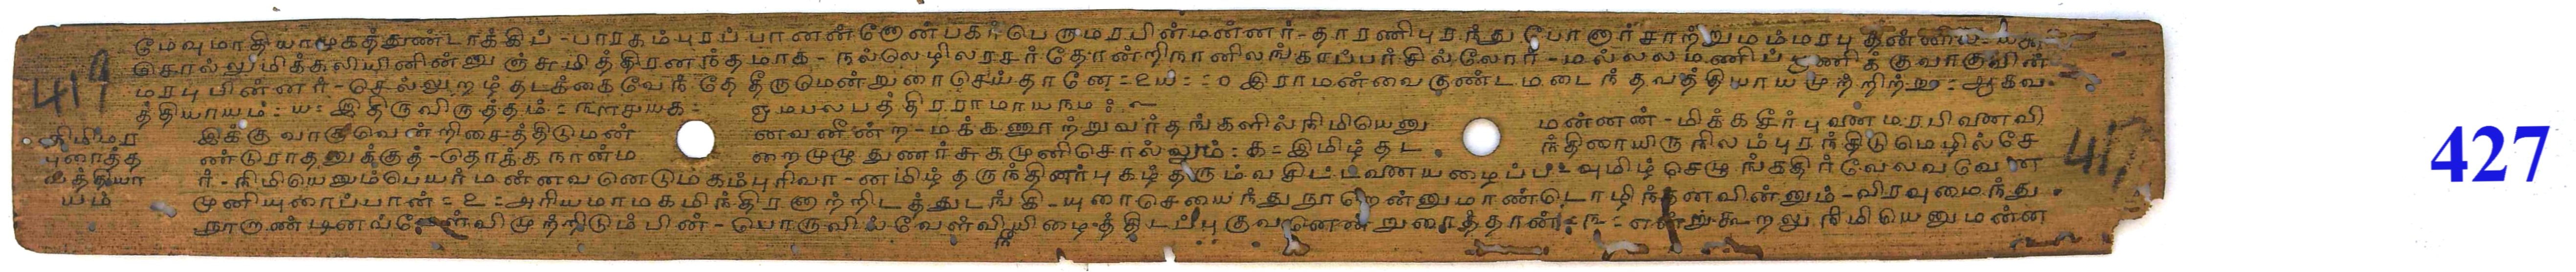 மேவுமாதியாமுகத்துண்டாக்கிப் - பாரகம்புரப்பானன்னோன்பகர்பெருமரபின்மன்னர் - தாரணிபுரந்து போனார்சாற்றுமம்மரபு தன்னில்
சொல்லுமிக்கலியினின்னுஞ்சுமித்திரனந்தமாக - நல்லெழிலரசர்தோன்றிநானிலங்காப்பர்சில்லோர் - மல்லலமணிப் பூணிக்குவாகுவின்
மரபுபின்னர் - செல்லுறழ்தடக்கைவேந்தே தீருமென்றுரைசெய்தானே = உய = இராமன்வைகுண்டமடைந்தவத்தியாயமுற்றிற்று = ஆகவ
த்தியாயம் : ய = இதிருவிருத்தம் = ராமபத்திரராமாயநம :
நிமிமர புரைத்த வத்தியா யம்
இக்குவாகுவென்றிசைத்திடுமன்னவனீன்ற - மக்கணூற்றுவர்தங்களில்நிமியெனுமன்னன் - மிக்கசீர்புனைமரபினைவி
ண்டுராதனுக்குத் - தொக்கநான்மறைமுழுதுணர்சுகமுனிசொல்லும் : க = இமிழ்தடந்திரையிருநிலம்புரந்திடுமெழில்சே
ர் - நிமியெனும்பெயர்மன்னவனெடும்கம்புரிவா - னமிழ்தருந்தினர்புகழ்தரும்வசிட்டனையழைப்ப - வுமிழ்செழுங்கதிர்வேலவடுவன
முனியுரைப்பான் = உ = அரியமாமகமிந்திரனாற்றிடத்துடங்கி - யுரைசெயைந்துநூறென்னுமாண்டொழிந்தனவின்னும் - விரவுமைந்து
நூறாண்டினவ்வேள்விமுற்றிடும்பின் - பொருவில்வேள்வியிழைத்திடப்புகுவனென்றுரைத்தான் = ங = என்றுகூறலுநிமியெனுமன்ன
427